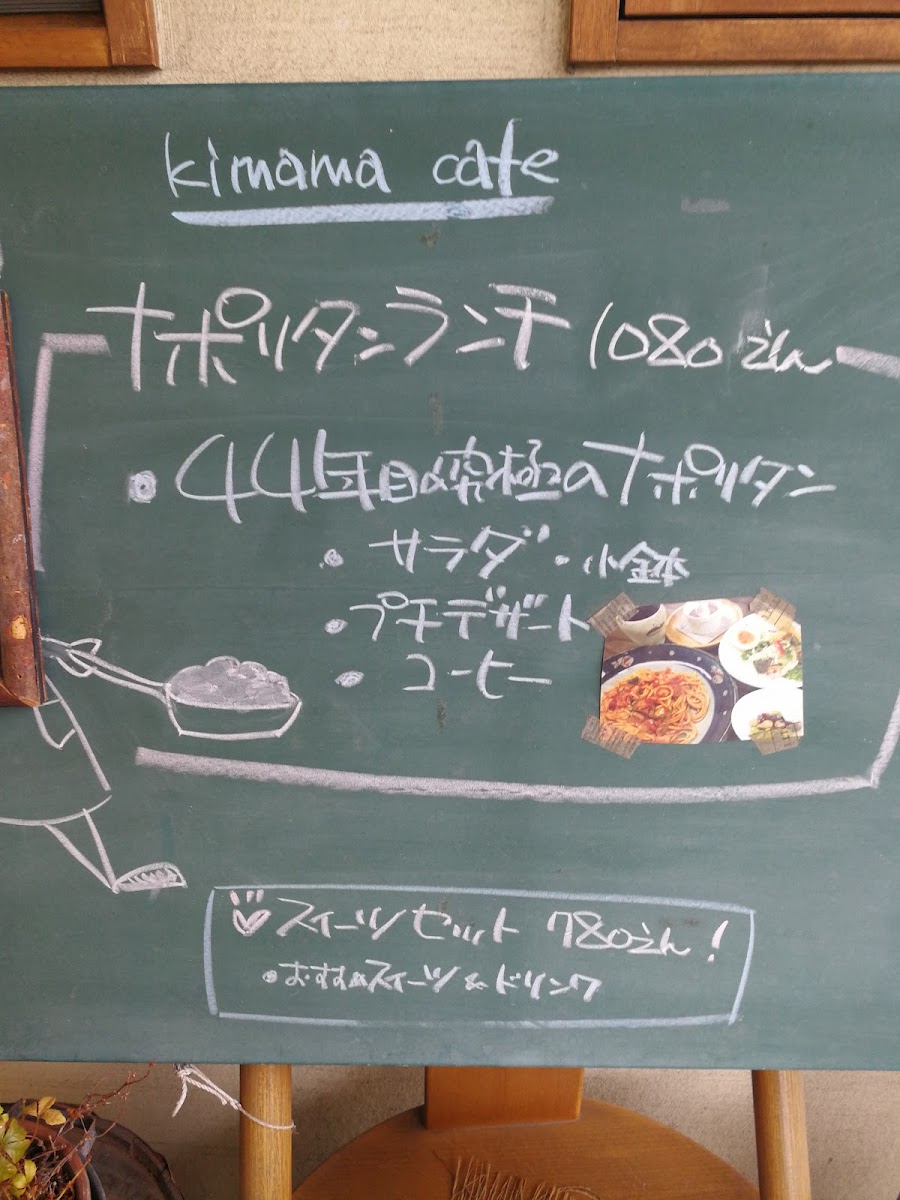 kimama cafe
ナポリタンランチ 1080えん
・44年目の究極のナポリタン
・サラダ・小鉢
・プチデザート
・コーヒー
スイーツセット 780えん!
・おすすめスイーツ&ドリンク